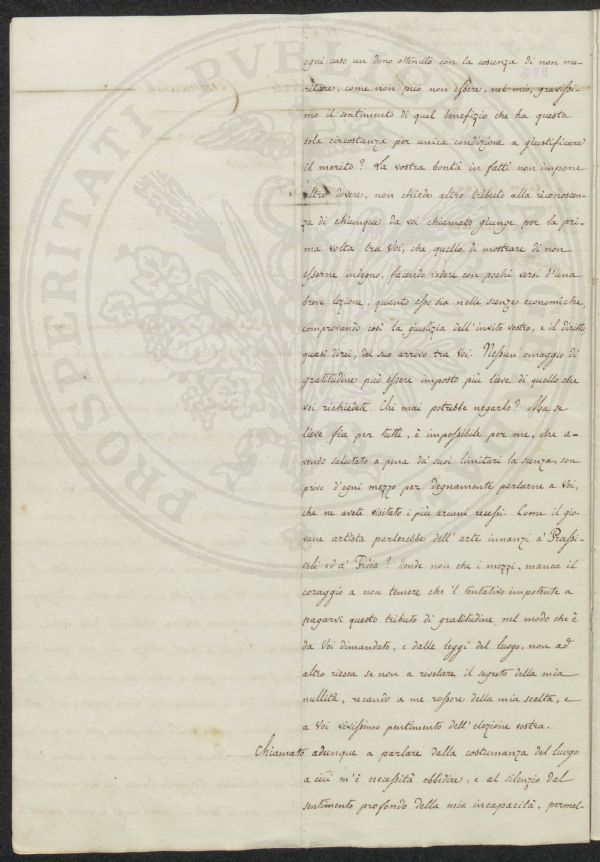 ogni caso un dono ottenuto con la coscenza di non me-
ritare, come non può non essere, nel mio, gravissi-
mo il sentimento di quel benefizio che ha questa
sola circostanza per unica condizione a giustificare
il merito? La vostra bontà in fatti non impone
altro dovere, non chiede altro tributo alla riconoscen-
za di chiunque da voi chiamato giunge per la pri-
ma volta tra Voi, che quello di mostrare di non
esserne indegno, facendo vedere con pochi versi d'una
breve lezione, quanto esso sia nelle scienze economiche,
comprovando così la giustizia dell'invito vostro, e il diritto
quasi direi, del suo arrivo tra Voi. Nessun'omaggio di
gratitudine può essere imposto più lieve di quello che
voi richiedete. Chi mai potrebbe negarlo? Ma se
lieve fia per tutti, è impossibile per me, che a-
vendo salutato a pena da' suoi limitari la scenza, son
privo d'ogni mezzo per degnamente parlarne a Voi,
che ne avete visitato i più arcani recessi. Come il gio-
vane artista parlerebbe dell'arte innanzi a' Prassi-
teli ed a' Fidia? donde non che i mezzi, manca il
coraggio a non temere che 'l tentativo impotente a
pagarvi questo tributo di gratitudine nel modo che è
da Voi dimandato, e dalle leggi del luogo, non ad
altro riesca se non a rivelare il segreto della mia
nullità, recando a me rossore della mia scelta, e
a Voi vivissimo pentimento dell'elezione vostra.
Chiamato adunque a parlare dalla costumanza del luogo
a cui m'è necessità obbidire, e al silenzio dal
sentimento profondo della mia incapacità, permet-
PROSPERITATI PVBLICAE